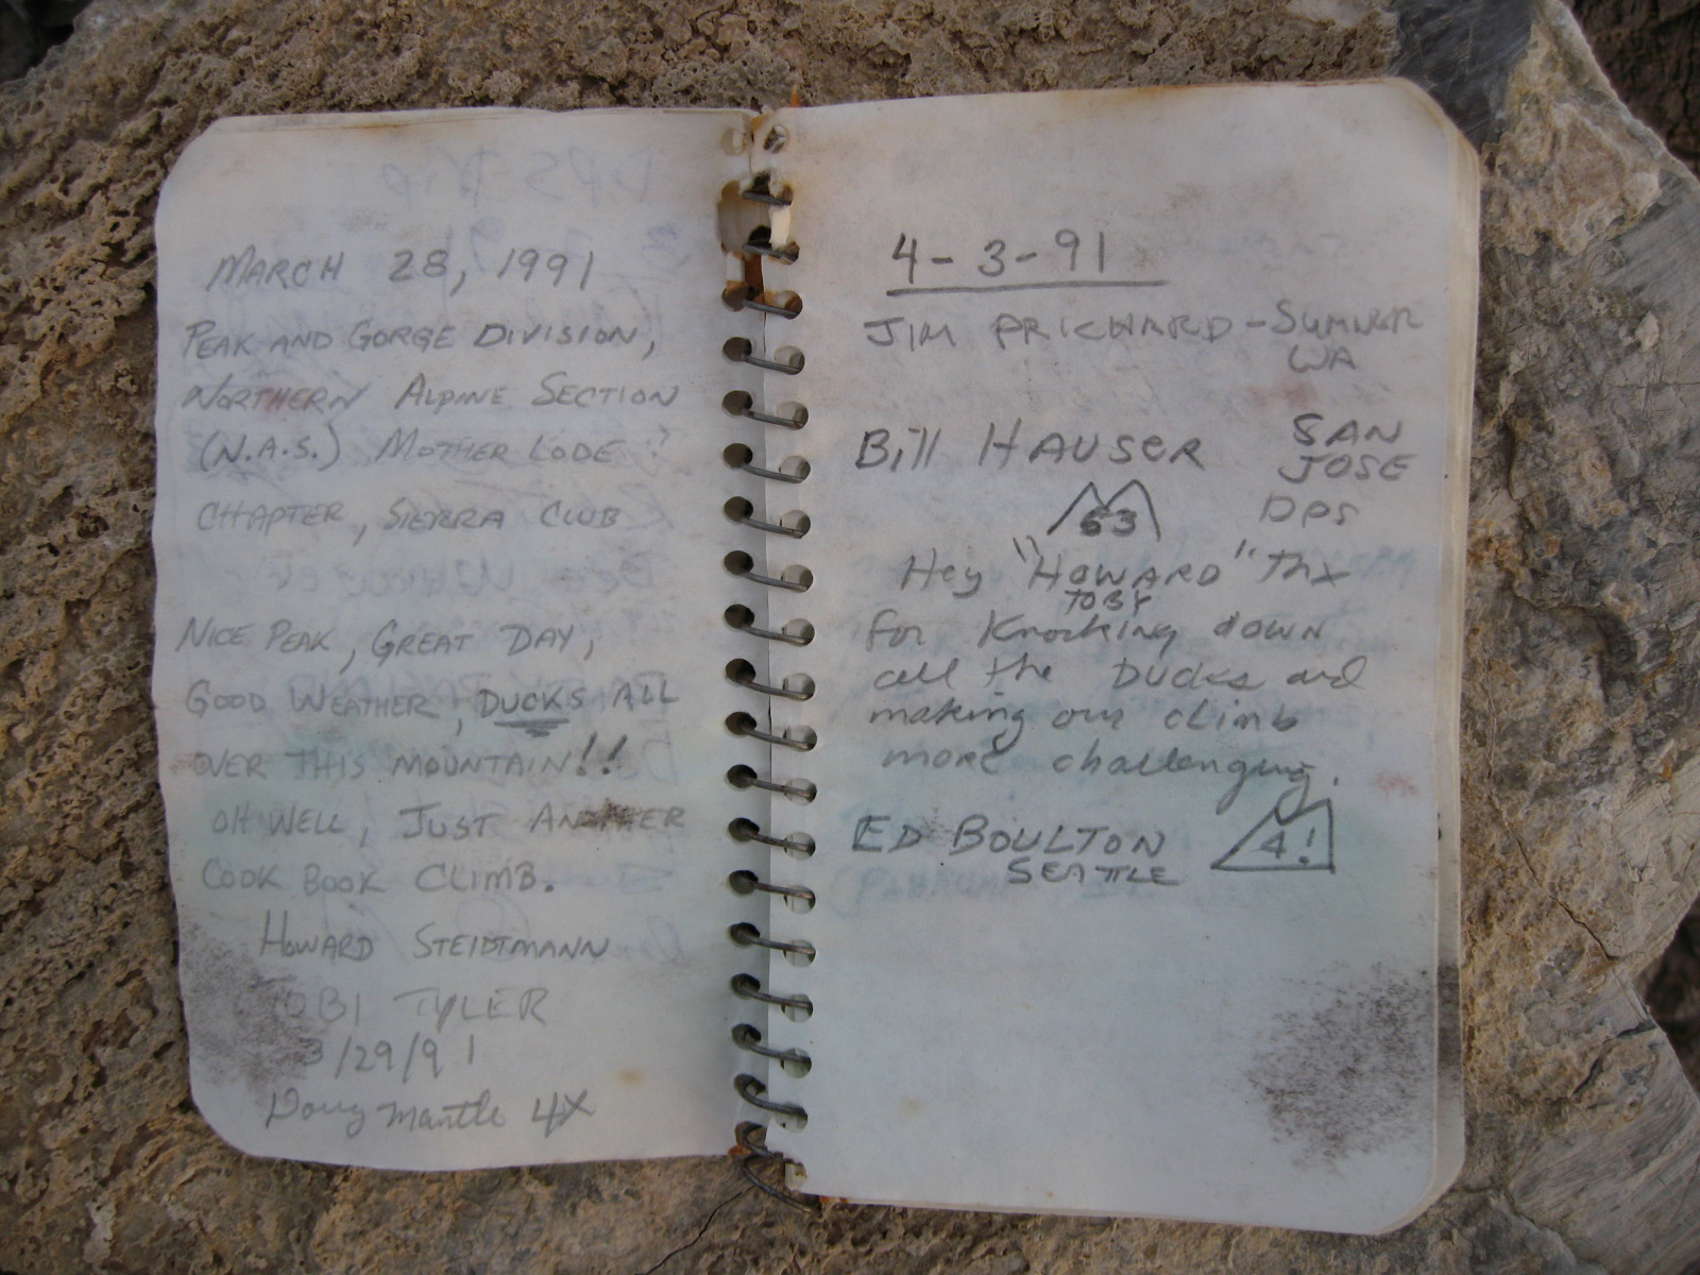 MARCH 28, 1991
PEAK AND GORGE DIVISION,
NORTHERN ALPINE SECTION
(N.A.S.) MOTHER LODE
CHAPTER, SIERRA CLUB
NICE PEAK, GREAT DAY,
GOOD WEATHER, DUCKS ALL
OVER THIS MOUNTAIN!!
OH WELL, JUST ANOTHER
COOK BOOK CLIMB.
HOWARD STEIDTMANN
TOBI TYLER
3/29/91
Doug Mantle 4X
4-3-91
JIM PRICHARD - SUMNER
WA
Bill HAUSER SAN
JOSE
63 DPS
Hey "HOWARD" Thx
TOBY
for Knocking down
all the Ducks and
making our climb
more challenging.
ED BOULTON 4!
SEATTLE